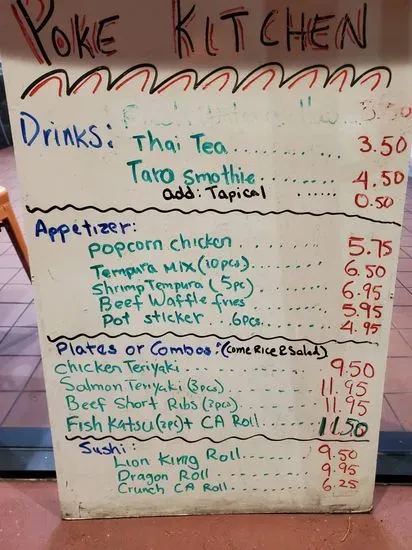 POKE KITCHEN
3.50
Drinks:
Thai Tea ........ 3.50
Taro smothie ..... 4.50
add: Tapical ...... 0.50
Appetizer:
popcorn chicken ........ 5.75
Tempura Mix (10pcs) ........ 6.50
Shrimp Tempura (5pc) ........ 6.95
Beef Waffle fries ........ 5.95
Pot sticker . 6pcs ........ 4.95
Plates or Combos: (Come Rice & Salad)
Chicken Teriyaki ........ 9.50
Salmon Teriyaki (3pcs) ........ 11.95
Beef Short Ribs (3pcs) ........ 11.95
Fish Katsu (2pc) + CA Roll ........ 11.50
Sushi:
Lion King Roll ........ 9.50
Dragon Roll ........ 9.95
Crunch CA Roll ........ 6.25